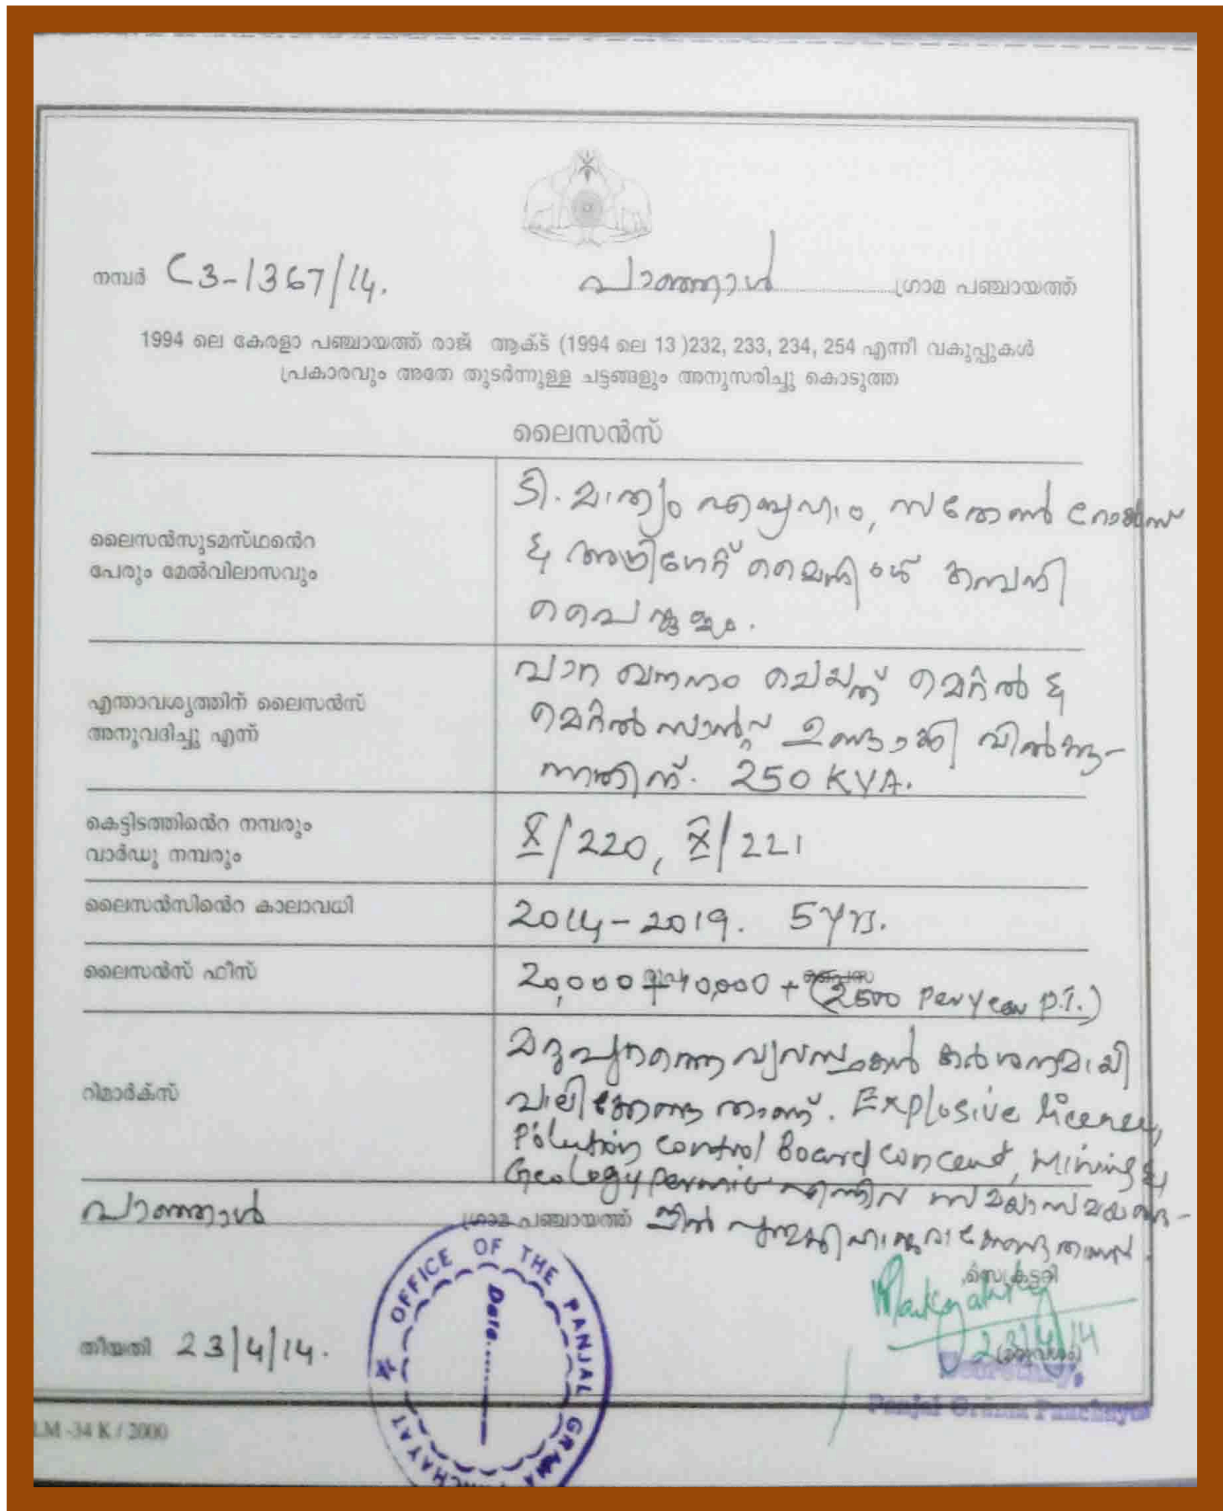 നമ്പർ C3-1367/14.
പാഞ്ഞാൾ ഗ്രാമ പഞ്ചായത്ത്
1994 ലെ കേരളാ പഞ്ചായത്ത് രാജ് ആക്ട് (1994 ലെ 13 )232, 233, 234, 254 എന്നീ വകുപ്പുകൾ
പ്രകാരവും അതേ തുടർന്നുള്ള ചട്ടങ്ങളും അനുസരിച്ചു കൊടുത്ത
ലൈസൻസ്
ലൈസൻസുടമസ്ഥന്റെ
പേരും മേൽവിലാസവും
ടി. മാത്യു എബ്രഹാം, സതേൺ റോക്സ്
& അഗ്രിഗേറ്റ് മൈനിംഗ് കമ്പനി
പൈങ്കുളം.
എന്താവശ്യത്തിന് ലൈസൻസ്
അനുവദിച്ചു എന്ന്
പാറ ഖനനം ചെയ്ത് മെറ്റൽ &
മെറ്റൽ സാന്റ് ഉണ്ടാക്കി വിൽക്കു-
ന്നതിന്. 250 KVA.
കെട്ടിടത്തിന്റെ നമ്പരും
വാർഡു നമ്പരും
X/220, X/221
ലൈസൻസിന്റെ കാലാവധി
2014-2019. 5 yrs.
ലൈസൻസ് ഫീസ്
20,000 + 40,000 + (2500 Per year P.T.)
റിമാർക്സ്
മറുപുറത്തെ വ്യവസ്ഥകൾ കർശനമായി
പാലിക്കേണ്ടതാണ്. Explosive licence,
Polution control Board concent, Mining &
Geology permit എന്നിവ സമയാസമയങ്ങ-
ളിൽ
പാഞ്ഞാൾ ഗ്രാമ പഞ്ചായത്ത്
സെക്രട്ടറി
23/4/14
തിയതി 23/4/14.
OFFICE OF THE PANJAL GRAMA PANCHAYAT
Date........
Secretary,
Panjal Grama Panchayat
LM -34 K / 2000